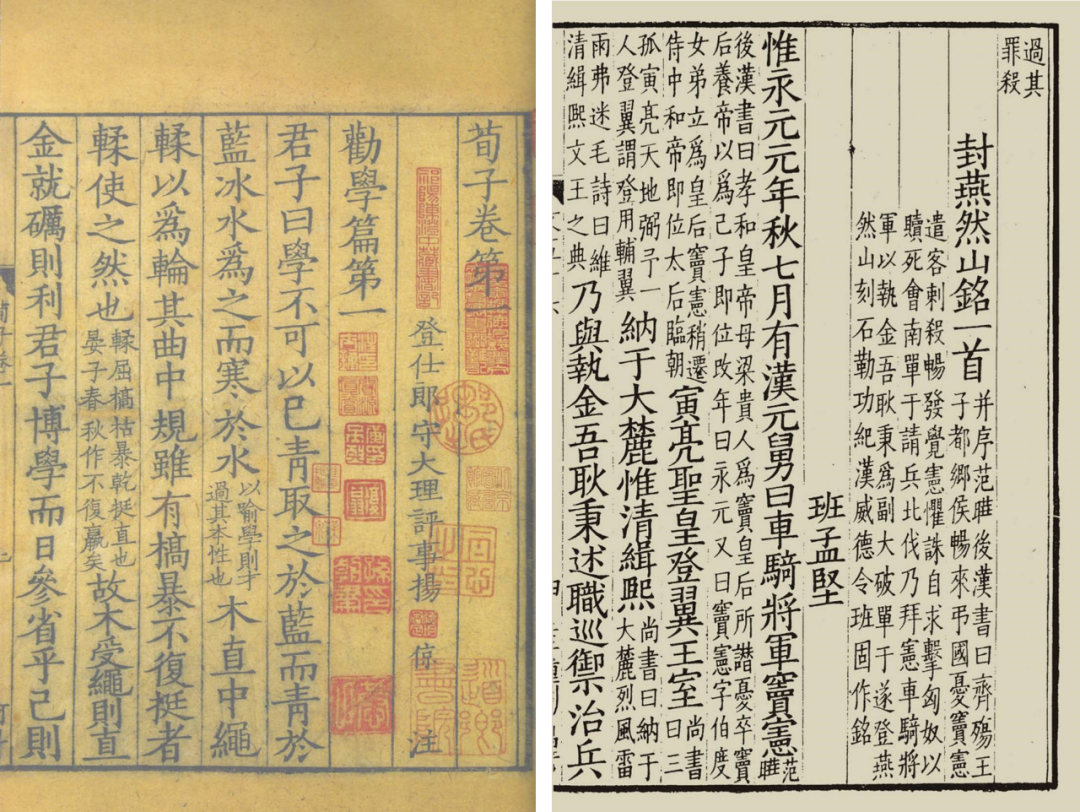 荀子卷第一
登仕郎守大理評事揚 倞 注
勸學篇第一
君子曰學不可以已青取之於藍而青於
藍冰水爲之而寒於水以喻學則才過其本性也木直中繩
輮以爲輪其曲中規雖有槁暴不復挺者
輮使之然也輮屈槁枯暴乾挺直也晏子春秋作不復贏矣故木受繩則直
金就礪則利君子博學而日參省乎己則
過其
罪殺
封燕然山銘一首并序范曄後漢書曰齊殤王
子都鄉侯暢來弔國憂竇憲
遣客刺殺暢發覺憲懼誅自求擊匈奴以
贖死會南單于請兵北伐乃拜憲車騎將
軍以執金吾耿秉爲副大破單于遂登燕
然山刻石勒功紀漢威德令班固作銘
班孟堅
惟永元元年秋七月有漢元舅曰車騎將軍竇憲范曄
後漢書曰孝和皇帝母梁貴人爲竇皇后所譖憂卒竇
后養帝以爲己子即位改年曰永元又曰竇憲字伯度
女弟立爲皇后竇憲稍遷侍中和帝即位太后臨朝寅亮聖皇登翼王室尚書曰三
孤寅亮天地弼予一人登翼謂登用輔翼納于大麓惟清緝熙尚書曰納于大麓烈風雷
雨弗迷毛詩曰維清緝熙文王之典乃與執金吾耿秉述職巡禦治兵